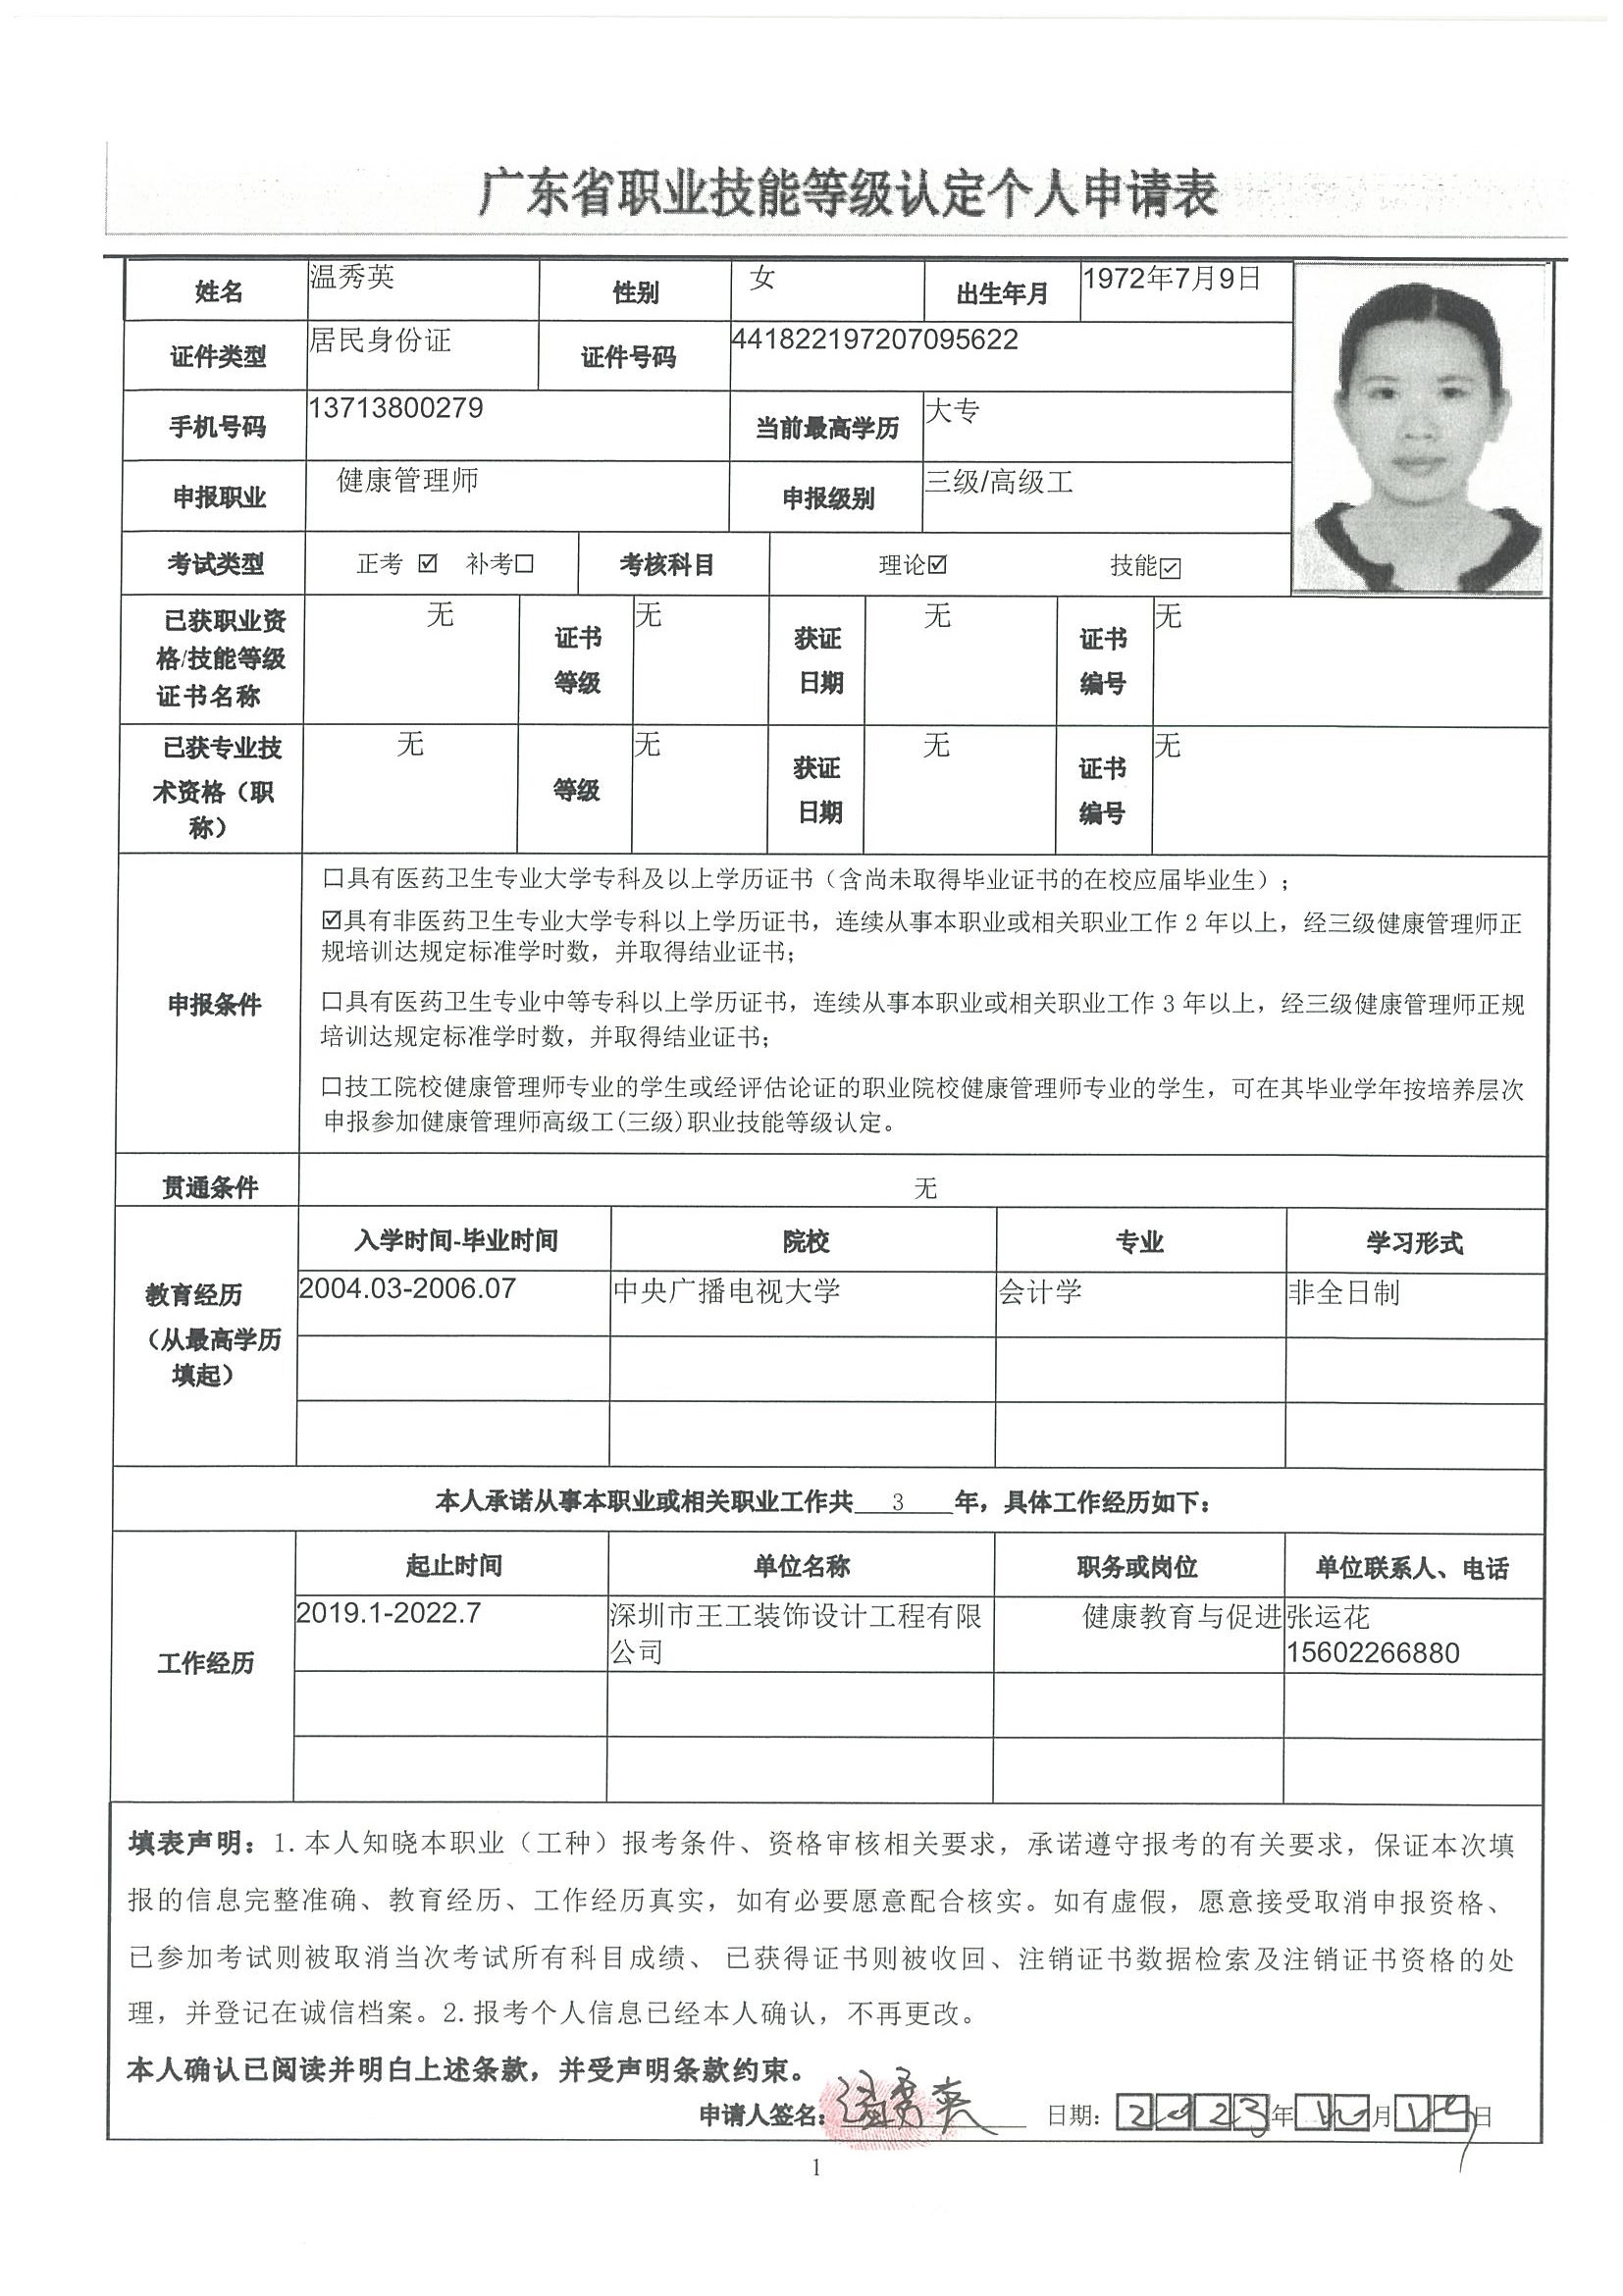 广东省职业技能等级认定个人申请表
姓名 温秀英 性别 女 出生年月 1972年7月9日
证件类型 居民身份证 证件号码 441822197207095622
手机号码 13713800279 当前最高学历 大专
申报职业 健康管理师 申报级别 三级/高级工
考试类型 正考 ☑ 补考☐ 考核科目 理论☑ 技能☑
已获职业资格/技能等级证书名称 无 证书等级 无 获证日期 无 证书编号 无
已获专业技术资格（职称） 无 等级 无 获证日期 无 证书编号 无
申报条件
口具有医药卫生专业大学专科及以上学历证书（含尚未取得毕业证书的在校应届毕业生）；
☑具有非医药卫生专业大学专科以上学历证书，连续从事本职业或相关职业工作 2 年以上，经三级健康管理师正
规培训达规定标准学时数，并取得结业证书；
口具有医药卫生专业中等专科以上学历证书，连续从事本职业或相关职业工作 3 年以上，经三级健康管理师正规
培训达规定标准学时数，并取得结业证书；
口技工院校健康管理师专业的学生或经评估论证的职业院校健康管理师专业的学生，可在其毕业学年按培养层次
申报参加健康管理师高级工(三级)职业技能等级认定。
贯通条件 无
教育经历（从最高学历填起）
入学时间-毕业时间 院校 专业 学习形式
2004.03-2006.07 中央广播电视大学 会计学 非全日制
本人承诺从事本职业或相关职业工作共 3 年，具体工作经历如下：
工作经历
起止时间 单位名称 职务或岗位 单位联系人、电话
2019.1-2022.7 深圳市王工装饰设计工程有限公司 健康教育与促进 张运花 15602266880
填表声明：1.本人知晓本职业（工种）报考条件、资格审核相关要求，承诺遵守报考的有关要求，保证本次填
报的信息完整准确、教育经历、工作经历真实，如有必要愿意配合核实。如有虚假，愿意接受取消申报资格、
已参加考试则被取消当次考试所有科目成绩、 已获得证书则被收回、注销证书数据检索及注销证书资格的处
理，并登记在诚信档案。2.报考个人信息已经本人确认，不再更改。
本人确认已阅读并明白上述条款，并受声明条款约束。
申请人签名：温秀英 日期：2023年 月 日
1